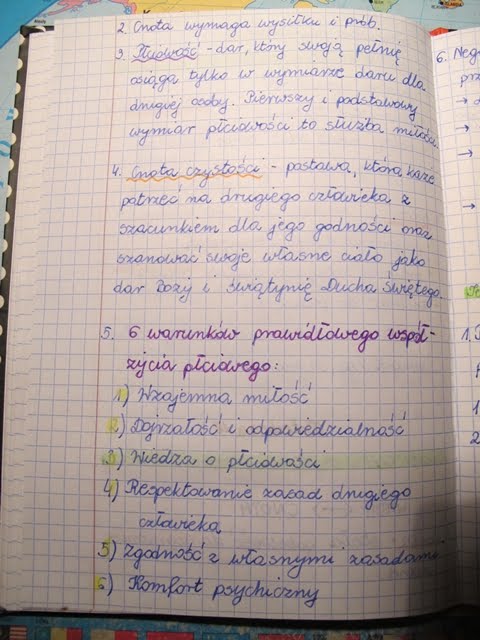 2. Cnota wymaga wysiłku i prób.
3. Płciowość - dar, który swoją pełnię
osiąga tylko w wymiarze daru dla
drugiej osoby. Pierwszy i podstawowy
wymiar płciowości to służba miłości.
4. Cnota czystości - postawa, która każe
patrzeć na drugiego człowieka z
szacunkiem dla jego godności oraz
szanować swoje własne ciało jako
dar Boży i świątynię Ducha Świętego.
5. 6 warunków prawidłowego współ-
życia płciowego:
1) Wzajemna miłość
2) Dojrzałość i odpowiedzialność
3) Wiedza o płciowości
4) Respektowanie zasad drugiego
człowieka
5) Zgodność z własnymi zasadami
6) Komfort psychiczny
6. Neg
prz
1.
1
2